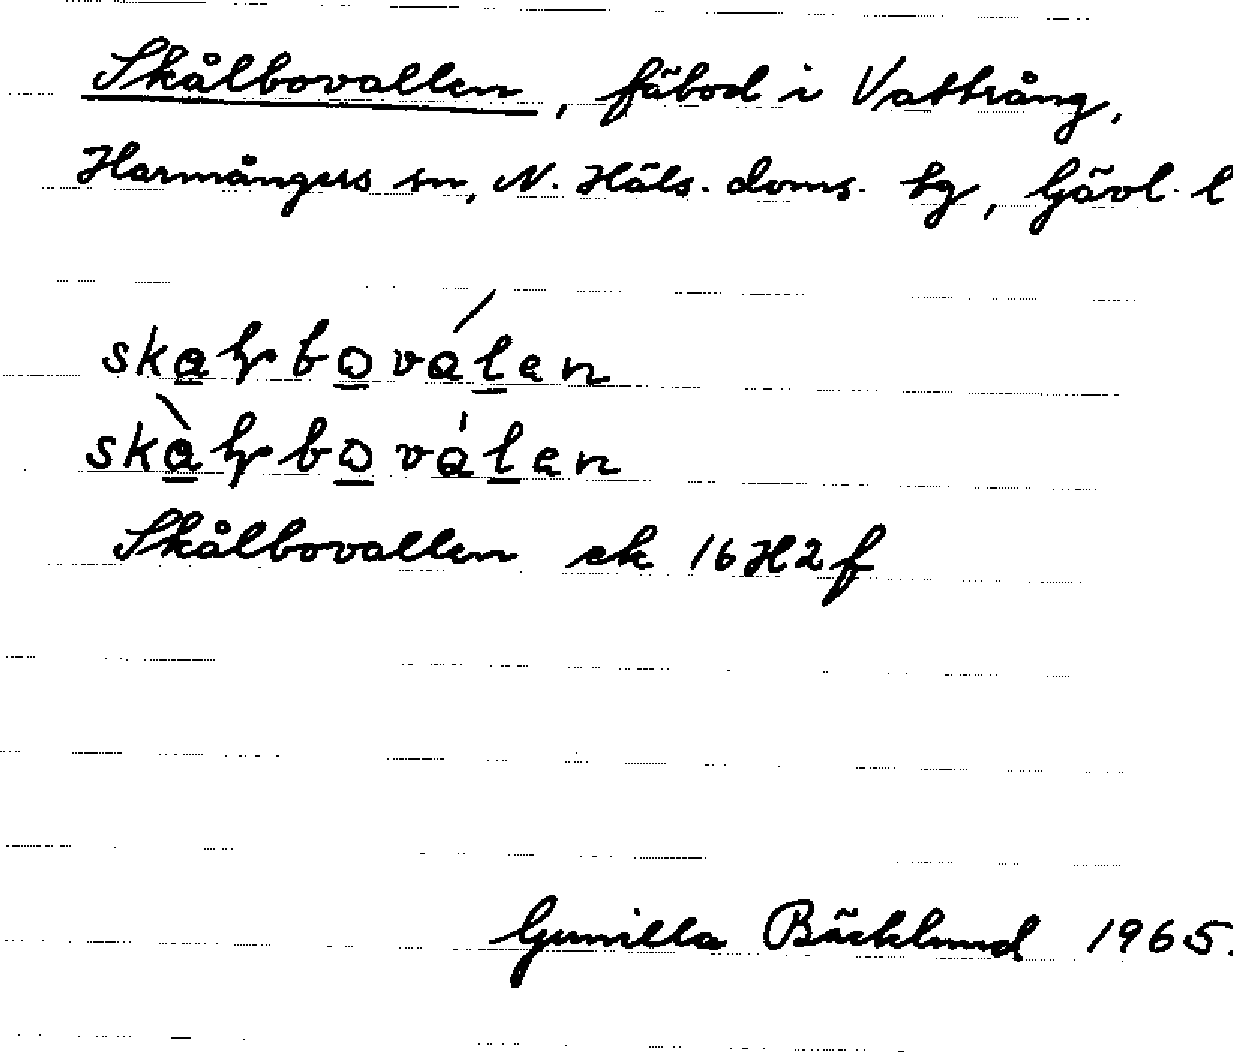 Skålbovallen, fäbod i Vattrång,
Harmångers sn, N. Häls. doms. tg, Gävl. l
Skålbovallen ek 16H2f
Gunilla Bäcklund 1965.